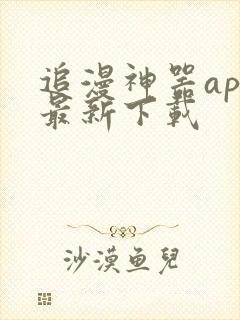 追漫神器ap
最新下载
沙漠鱼兒